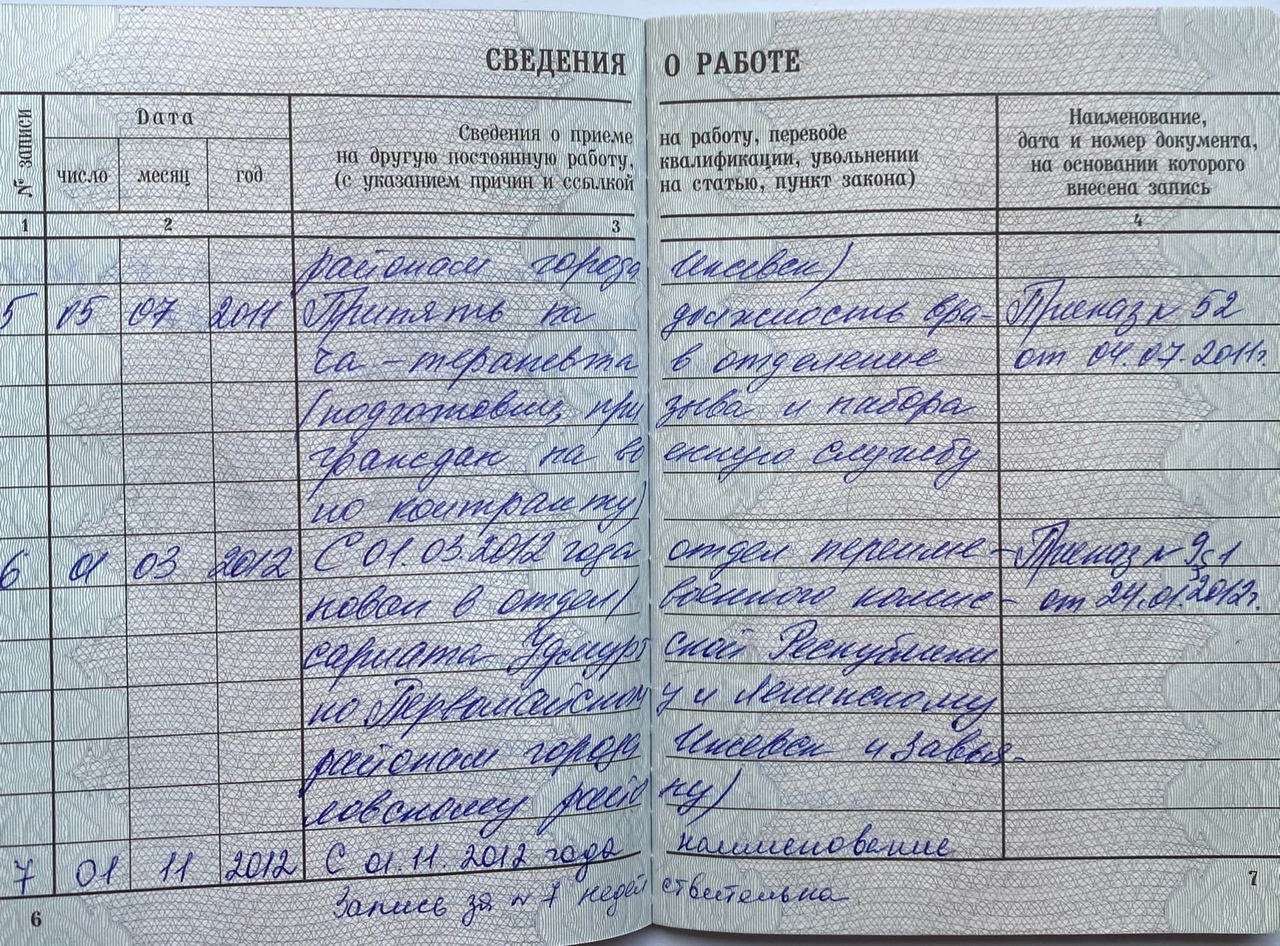 СВЕДЕНИЯ О РАБОТЕ
№ записи
Дата
число месяц год
Сведения о приеме на работу, переводе
на другую постоянную работу, квалификации, увольнении
(с указанием причин и ссылкой на статью, пункт закона)
Наименование,
дата и номер документа,
на основании которого
внесена запись
1 2 3 4
районам города Ижевск)
5 05 07 2011 Принять на должность вра- Приказ № 52
ча-терапевта в отделение от 04.07.2011г.
(подготовки, призыва и набора
граждан на военную службу
по контракту)
6 01 03 2012 С 01.03.2012 года отдел переиме- Приказ №
нован в отдел (военного комис- от 24.01.2012г.
сариата Удмуртской Республики
по Первомайскому и Ленинскому
районам города Ижевск и Завья-
ловскому району)
7 01 11 2012 С 01.11.2012 года наименование
Запись за № 7 недействительна
6 7